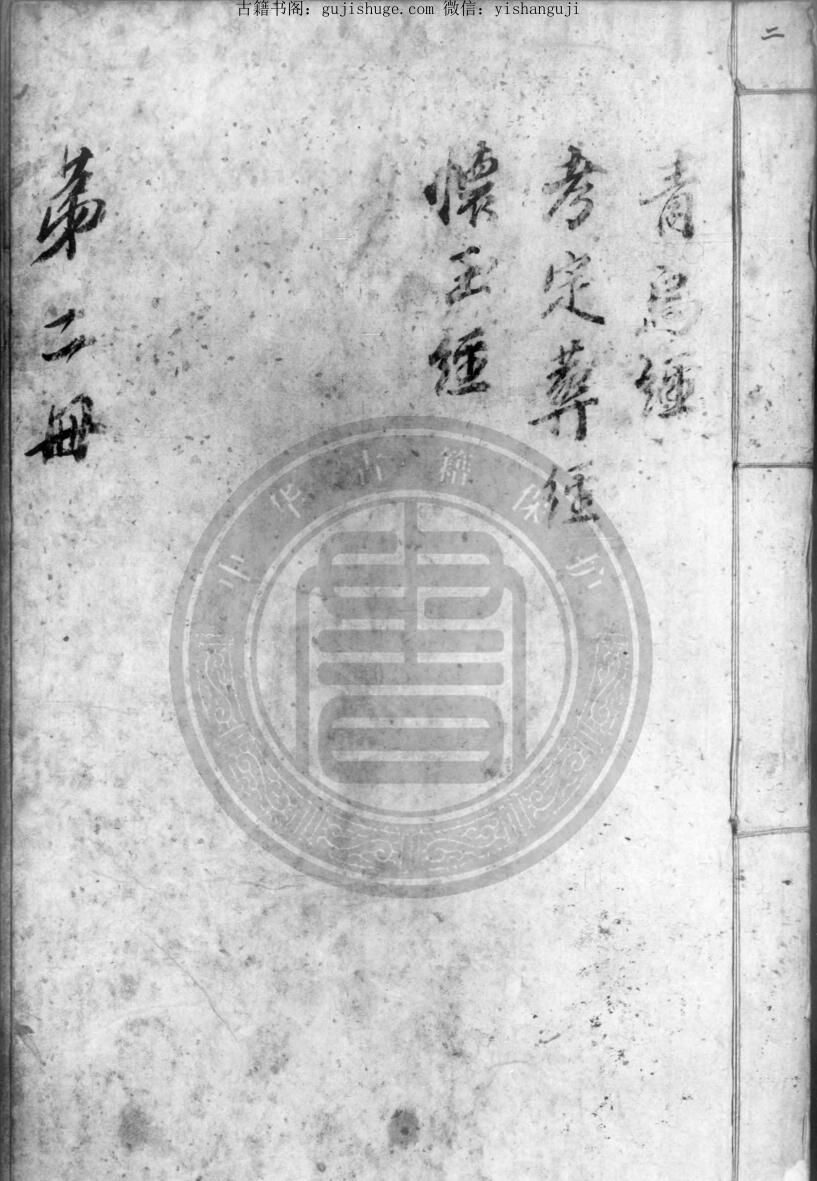 古籍书阁：gujishuge.com 微信：yishanguji
二
青烏經
考定葬經
懷玉經
第二冊
中华古籍保护